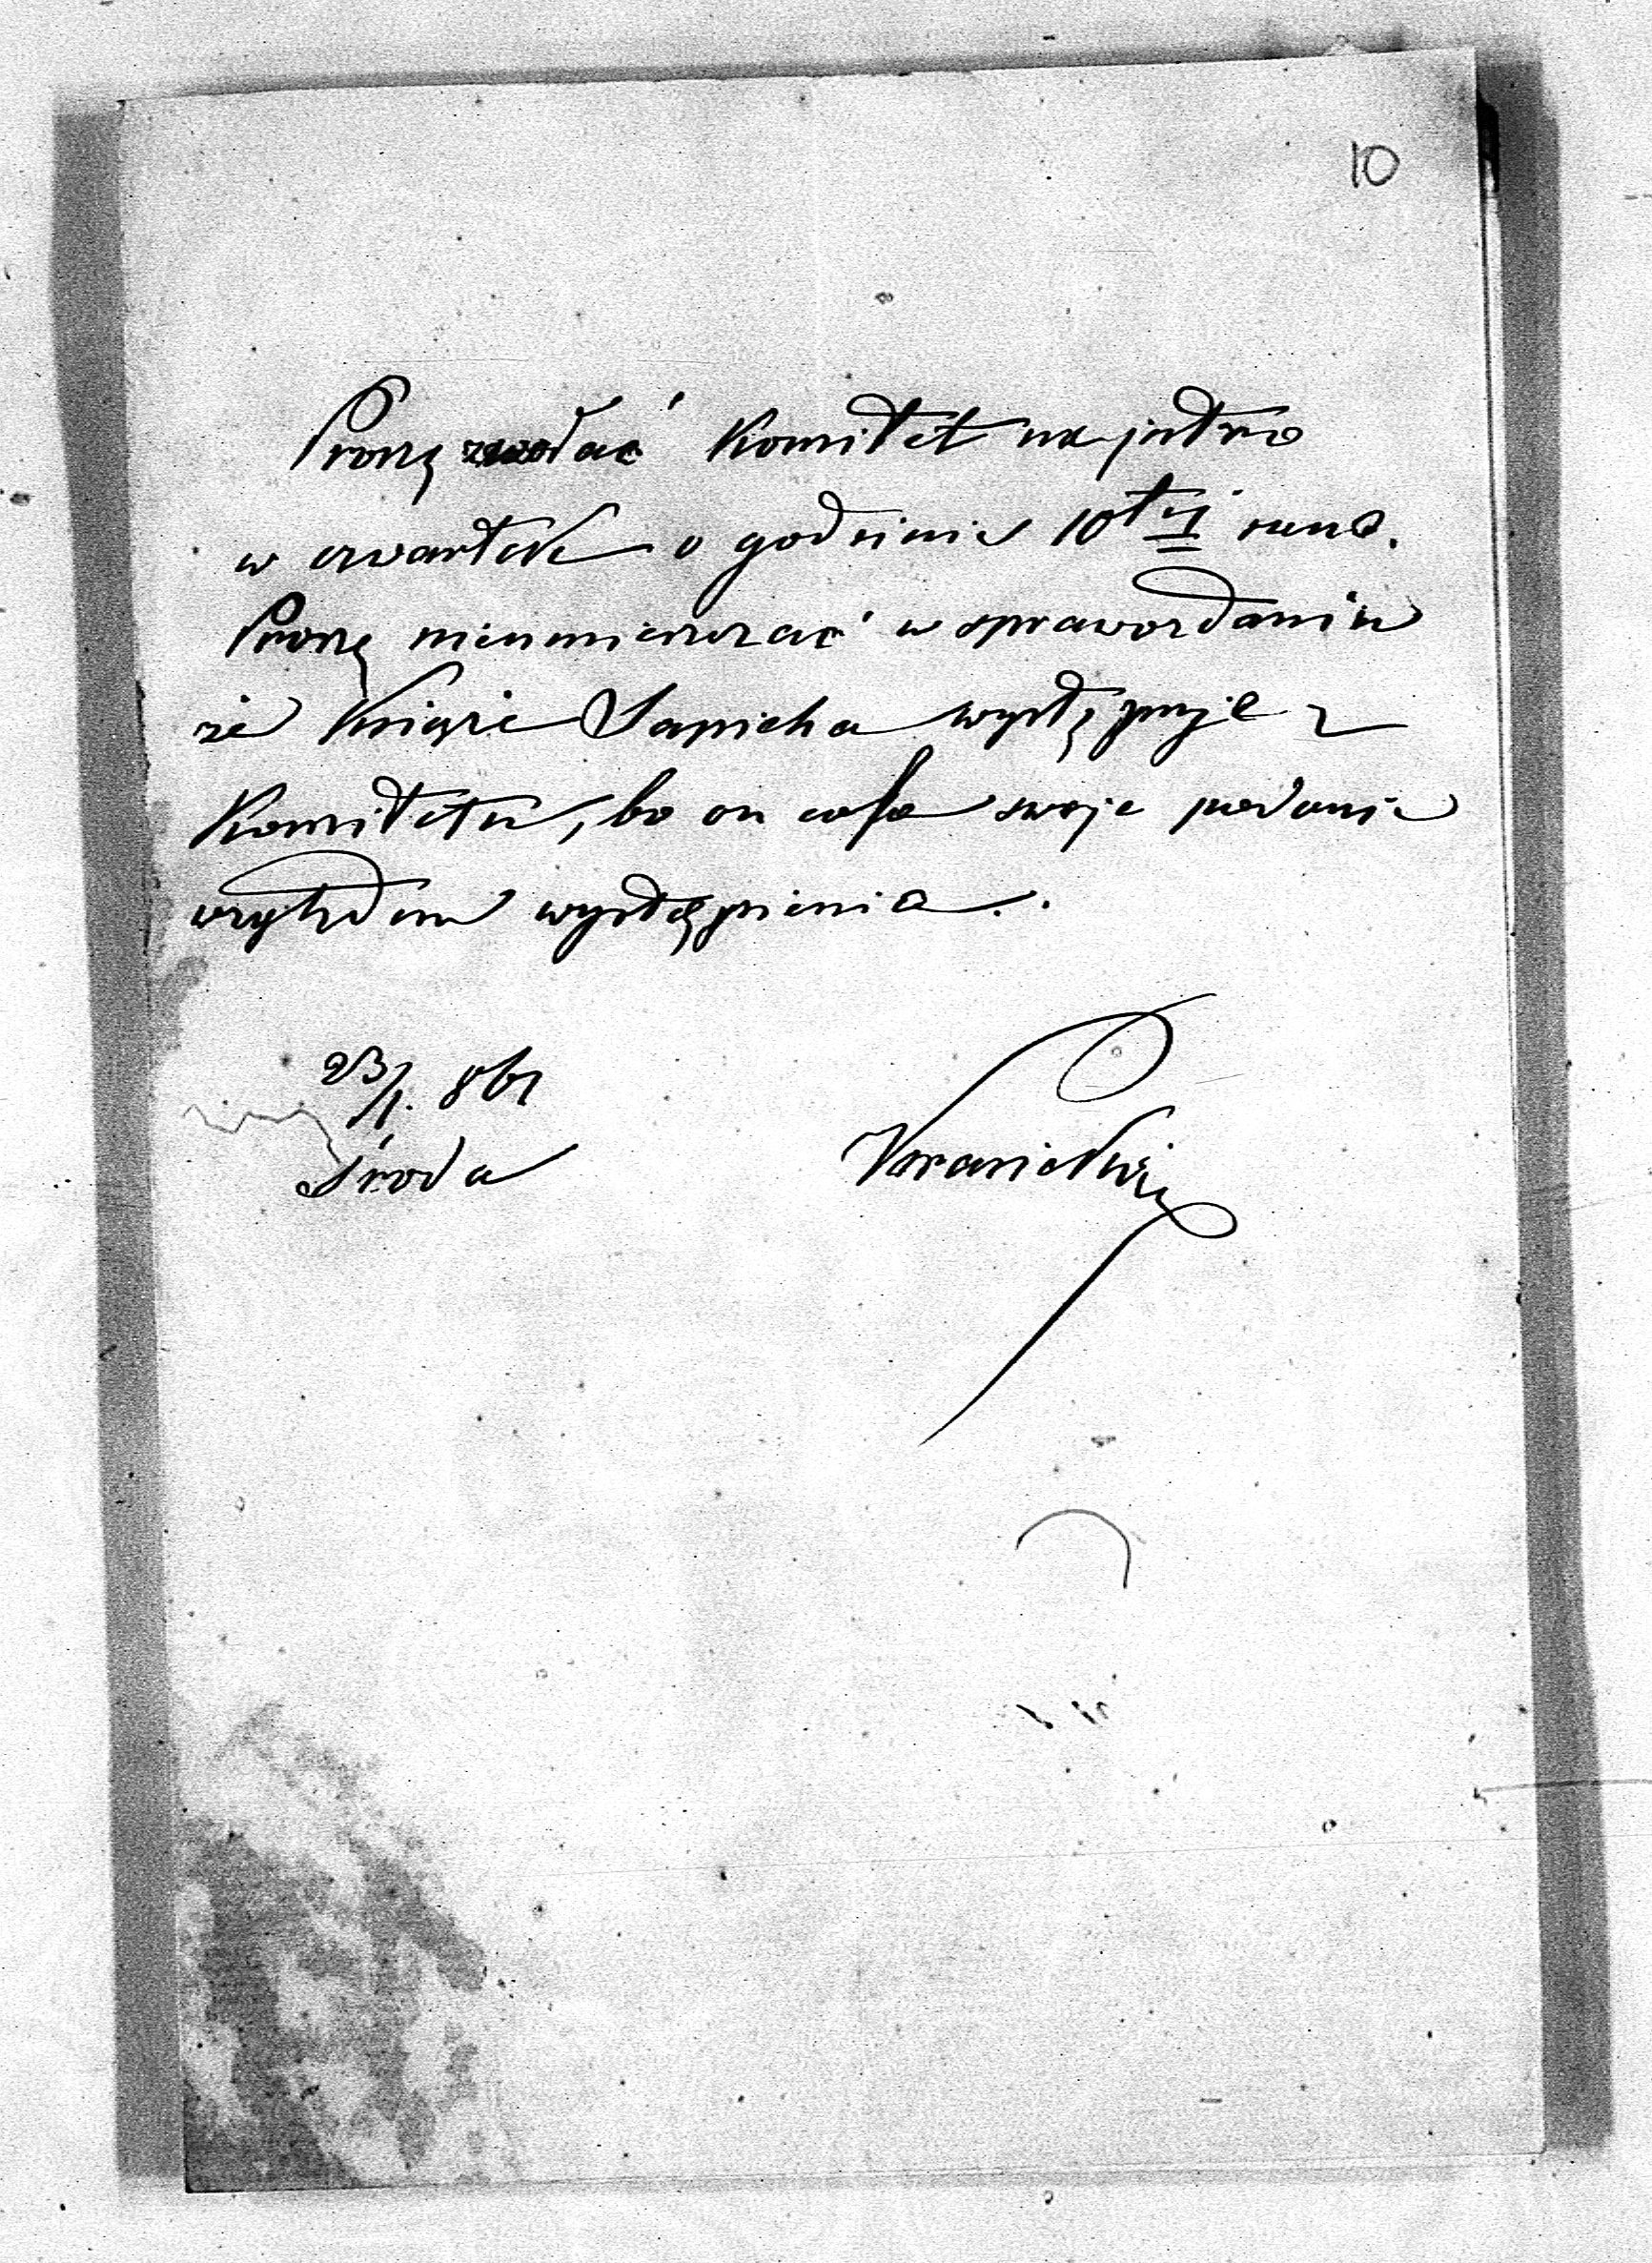 10
Proszę zwołać Komitet na jutro
w czwartek o godzinie 10tej rano.
Proszę nieumieszczać w sprawozdaniu
że Książe Sapieha występuje z
Komitetu, bo on cofa swoje podanie
względem wystąpienia.
23/1. 861
Środa